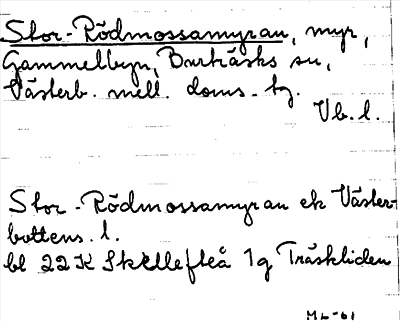 Stor-Rödmossamyran, myr,
Gammelbyn, Burträsks sn,
Västerb. mell. doms.-tg.
Vb. l.
Stor-Rödmossamyran ek Väster-
bottens. l.
bl 22K Skellefteå 1g Träskliden